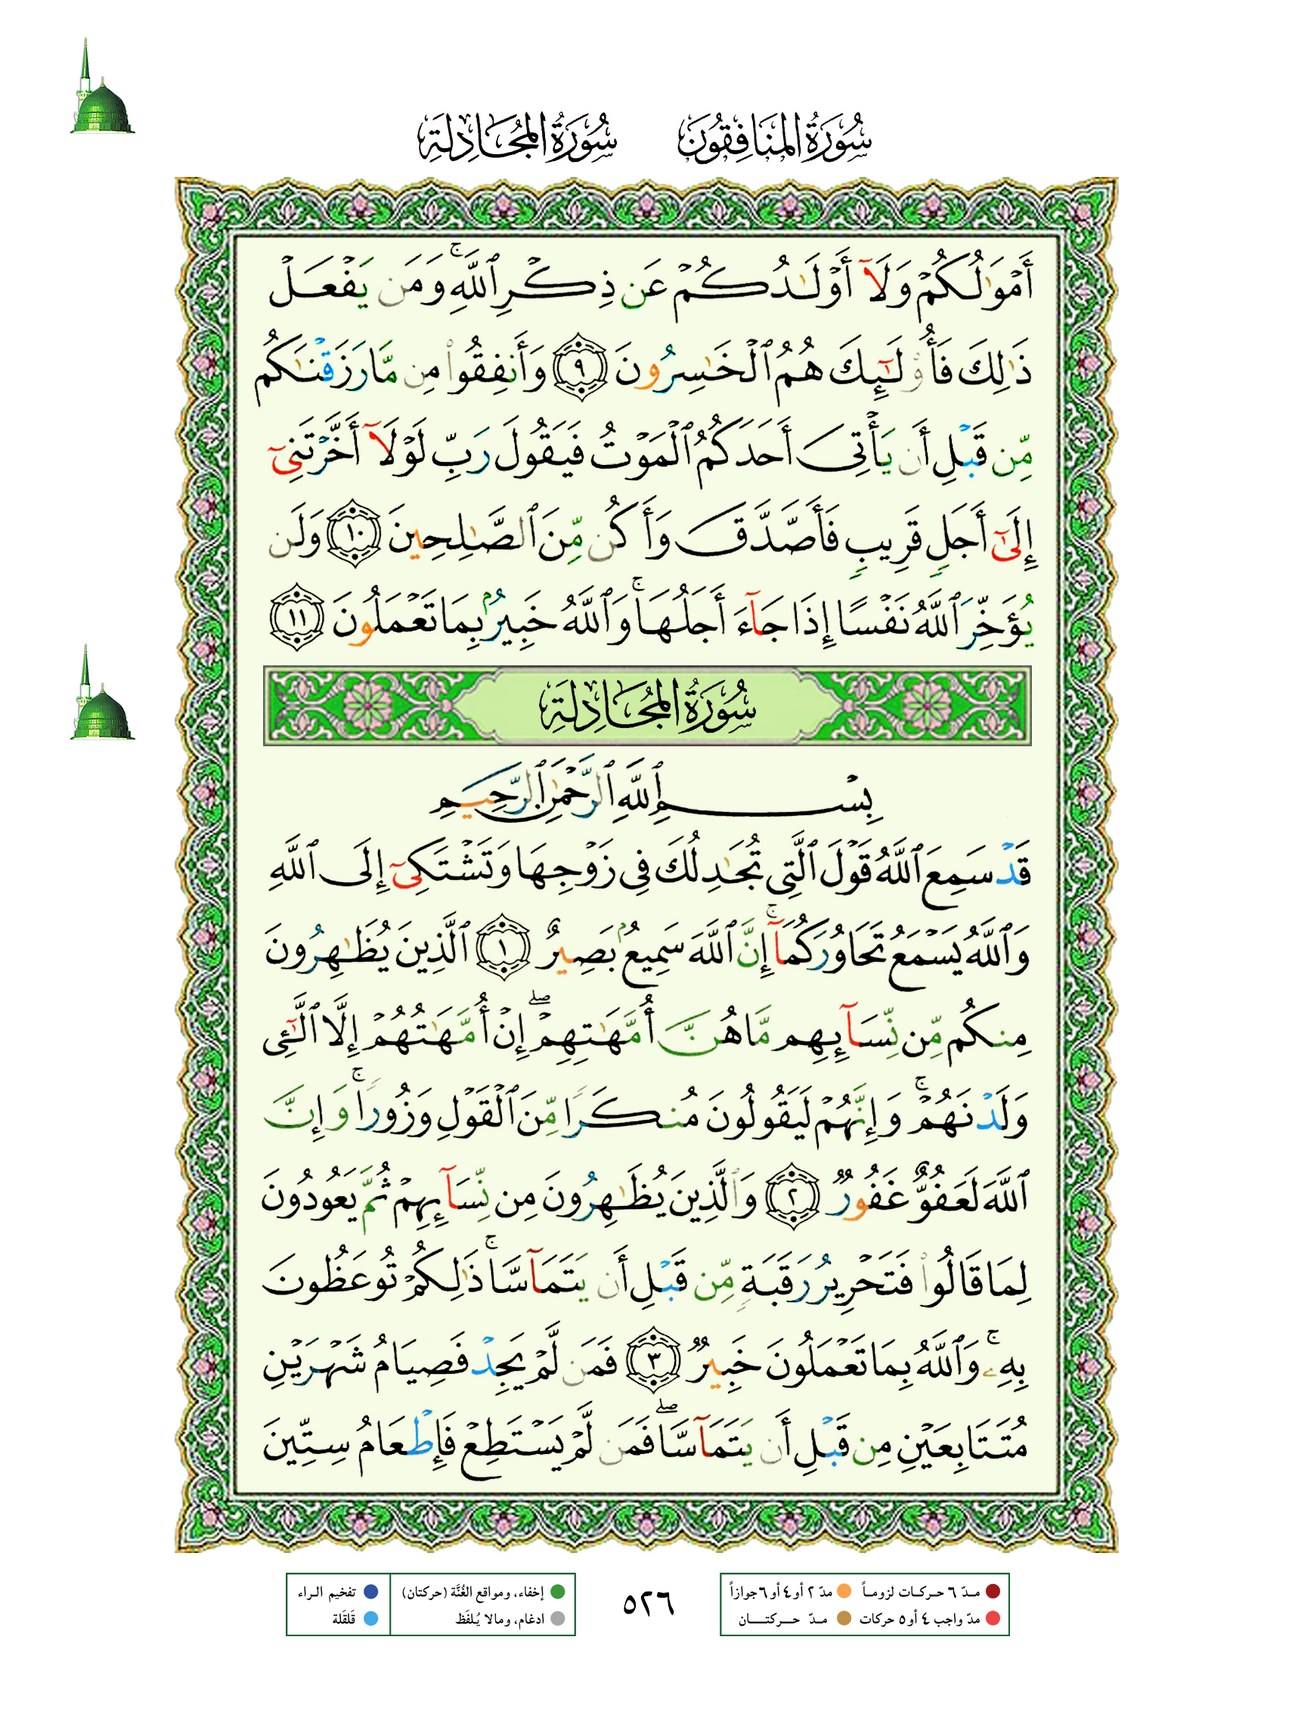 سُورَةُ المُنَافِقُونَ سُورَةُ المُجَادِلَةِ
أَمْوَٰلُكُمْ وَلَآ أَوْلَـٰدُكُمْ عَن ذِكْرِ ٱللَّهِ ۚ وَمَن يَفْعَلْ
ذَٰلِكَ فَأُو۟لَـٰٓئِكَ هُمُ ٱلْخَـٰسِرُونَ ٩ وَأَنفِقُوا۟ مِن مَّا رَزَقْنَـٰكُم
مِّن قَبْلِ أَن يَأْتِىَ أَحَدَكُمُ ٱلْمَوْتُ فَيَقُولَ رَبِّ لَوْلَآ أَخَّرْتَنِىٓ
إِلَىٰٓ أَجَلٍ قَرِيبٍ فَأَصَّدَّقَ وَأَكُن مِّنَ ٱلصَّـٰلِحِينَ ١٠ وَلَن
يُؤَخِّرَ ٱللَّهُ نَفْسًا إِذَا جَآءَ أَجَلُهَا ۚ وَٱللَّهُ خَبِيرٌۢ بِمَا تَعْمَلُونَ ١١
سُورَةُ المُجَادِلَةِ
بِسْمِ ٱللَّهِ ٱلرَّحْمَـٰنِ ٱلرَّحِيمِ
قَدْ سَمِعَ ٱللَّهُ قَوْلَ ٱلَّتِى تُجَـٰدِلُكَ فِى زَوْجِهَا وَتَشْتَكِىٓ إِلَى ٱللَّهِ
وَٱللَّهُ يَسْمَعُ تَحَاوُرَكُمَآ ۚ إِنَّ ٱللَّهَ سَمِيعٌۢ بَصِيرٌ ١ ٱلَّذِينَ يُظَـٰهِرُونَ
مِنكُم مِّن نِّسَآئِهِم مَّا هُنَّ أُمَّهَـٰتِهِمْ ۖ إِنْ أُمَّهَـٰتُهُمْ إِلَّا ٱلَّـٰٓـِٔى
وَلَدْنَهُمْ ۚ وَإِنَّهُمْ لَيَقُولُونَ مُنكَرًا مِّنَ ٱلْقَوْلِ وَزُورًا ۚ وَإِنَّ
ٱللَّهَ لَعَفُوٌّ غَفُورٌ ٢ وَٱلَّذِينَ يُظَـٰهِرُونَ مِن نِّسَآئِهِمْ ثُمَّ يَعُودُونَ
لِمَا قَالُوا۟ فَتَحْرِيرُ رَقَبَةٍ مِّن قَبْلِ أَن يَتَمَآسَّا ۚ ذَٰلِكُمْ تُوعَظُونَ
بِهِۦ ۚ وَٱللَّهُ بِمَا تَعْمَلُونَ خَبِيرٌ ٣ فَمَن لَّمْ يَجِدْ فَصِيَامُ شَهْرَيْنِ
مُتَتَابِعَيْنِ مِن قَبْلِ أَن يَتَمَآسَّا ۖ فَمَن لَّمْ يَسْتَطِعْ فَإِطْعَامُ سِتِّينَ
مـدّ ٦ حركات لزوماً مدّ ٢ أو ٤ أو ٦ جوازاً
مدّ واجب ٤ أو ٥ حركات مدّ حركتان
٥٢٦
إخفاء، ومواقع الغُنَّة (حركتان) تفخيم الراء
ادغام، ومالا يُلفَظ قَلقَلة